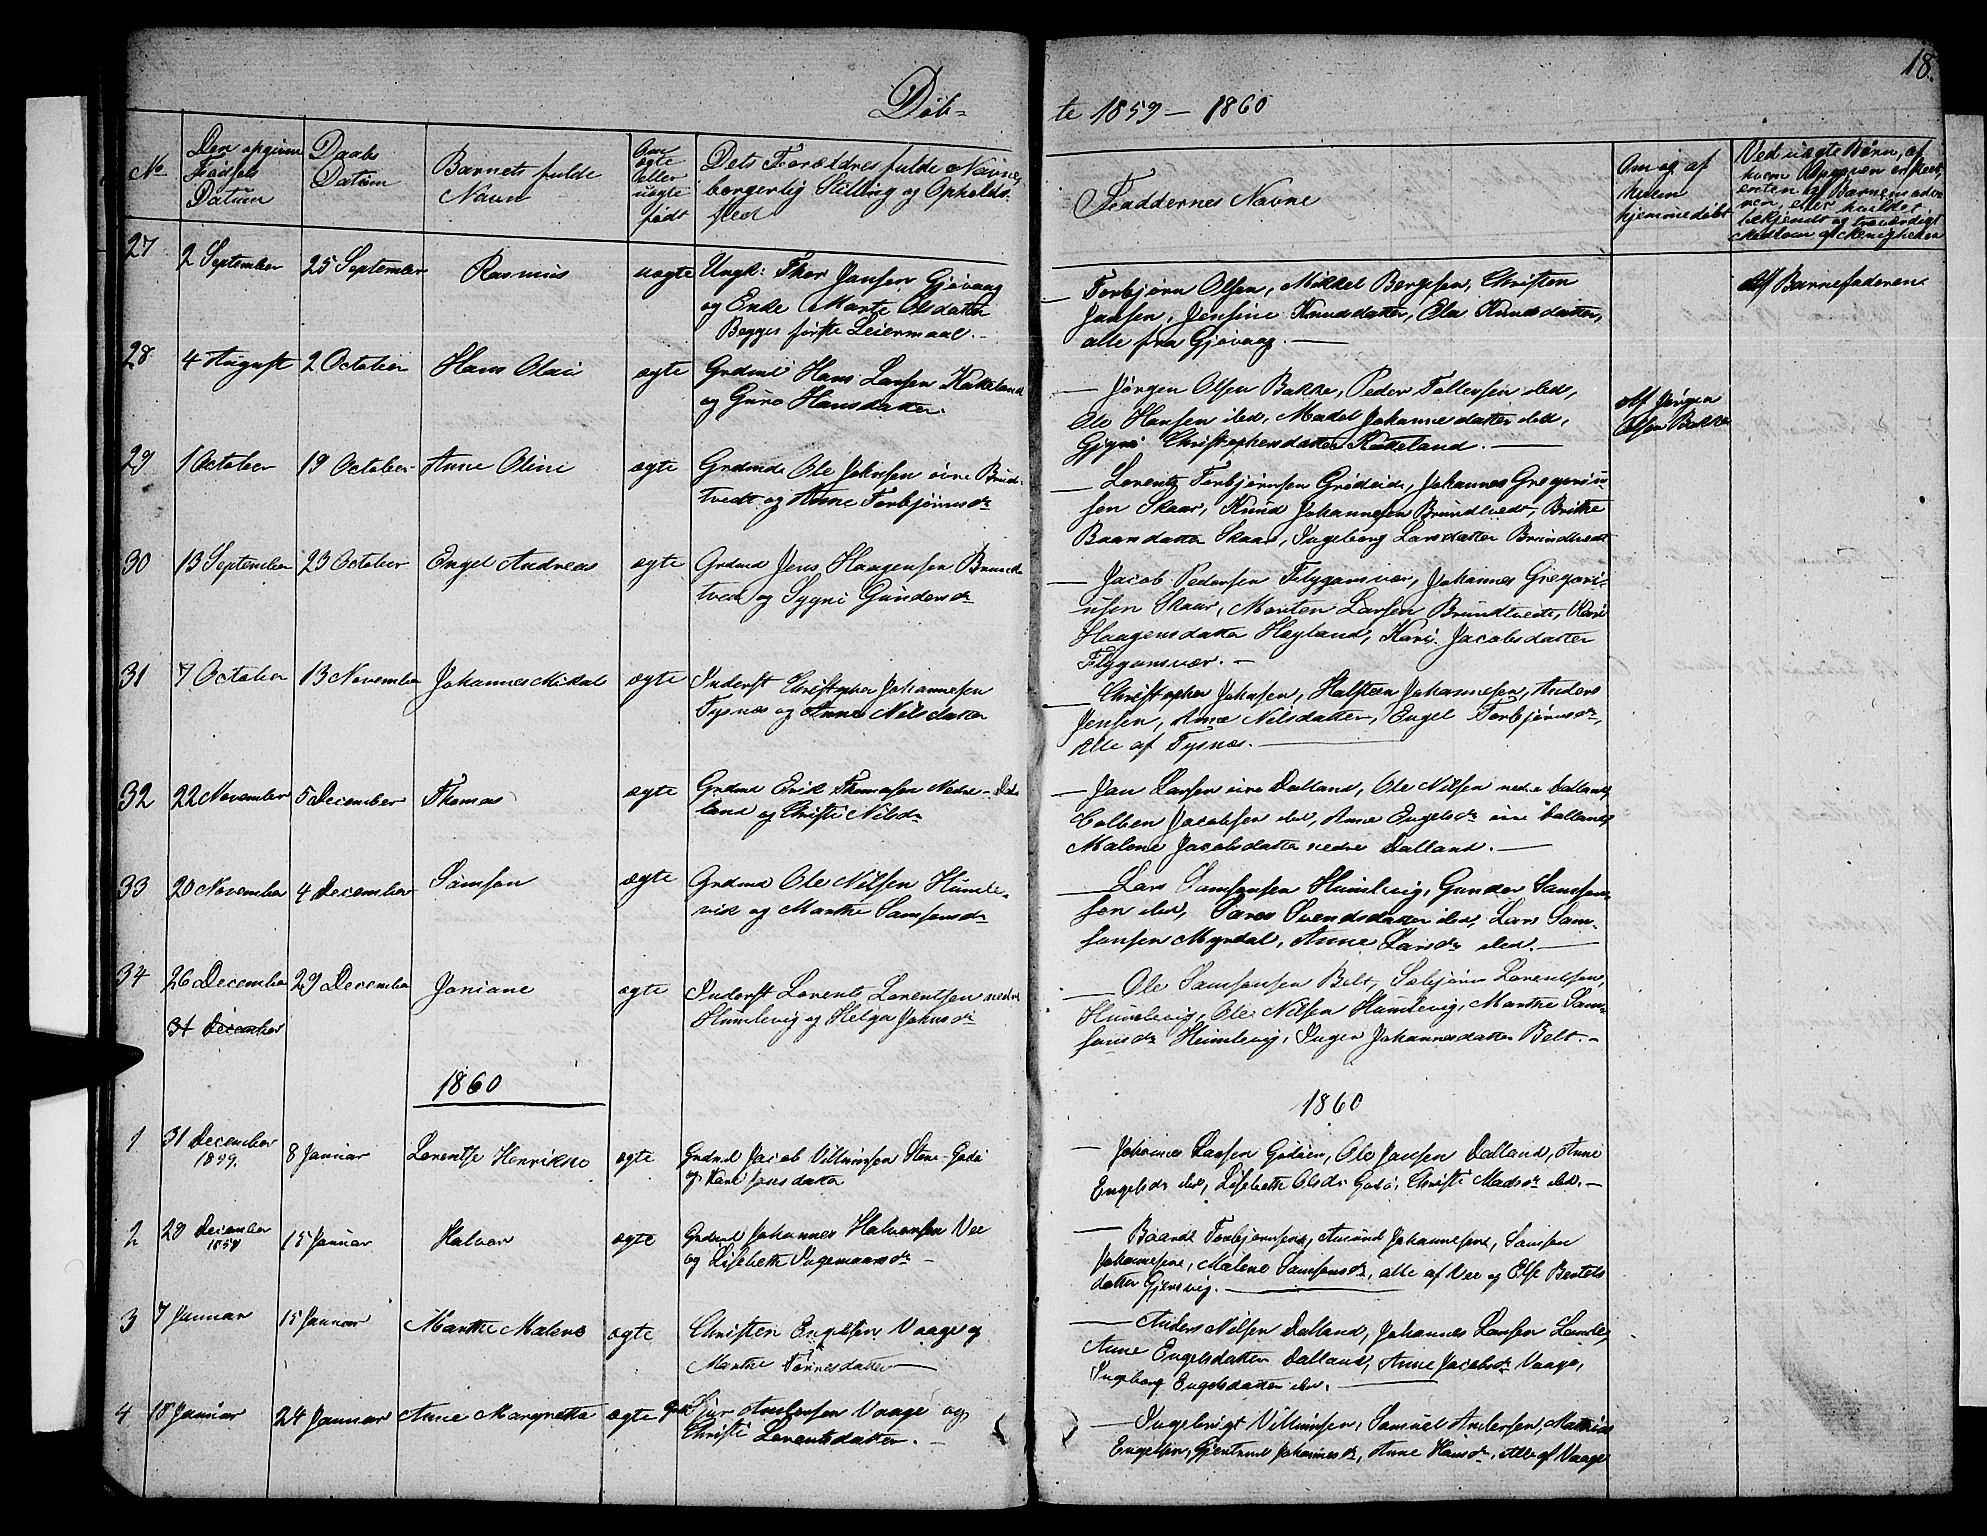 18.
Døb-
te 1859 - 1860
No
Den opgivne Fødsels Datum
Daabs Datum
Barnets fulde Navn
Om ægte eller uægte født
Dets Forældres fulde Navne, borgerlig Stilling og Opholds-sted
Faddernes Navne
Om og af hvem hjemmedøbt
Ved uægte Børn, af hvem Opgaven
27 2 September 25 September Rasmus uægte Ungk: Thor Jansen Gjøvaag
og Enke Marte Olsdatter
Begges første Leiermaal.-
- Torbjørn Olsen, Mikkel Bergesen, Christen
Jansen, Jensine Knudsdatter, Ela Knudsdatter,
alle fra Gjøvaag. -
Af Barnefaderen
28 4 August 2 October Hans Olai ægte Grdmd Hans Larsen Kakeland
og Guro Hansdatter.
- Jørgen Olsen Bakke, Peder Tollefsen ibd,
Ole Hansen ibd, Madel Johannesdatter ibd,
Christophersdatter Kakeland. -
Af Jørgen
Olsen Bakke
29 1 October 19 October Anne Oline ægte Grdmd Ole Johnsen øvre Brund-
tvedt og Anne Torbjørnsdr
- Lorents Torbjørnsen Grødeide, Johannes Gregorius-
sen Skaar, Knud Johannesen Brundtvedt, Brithe
Baarsdatter Skaar, Ingeborg Larsdatter Brundtvedt
30 13 September 23 October Engel Andreas ægte Grdmd Jens Haagensen Brundt-
tvedt og Sygni Gundersdr
- Jacob Pedersen Flygansvær, Johannes Gregori-
ussen Skaar, Morten Larsen Brundtvedt, Kari
Haagensdatter Høyland, Kari Jacobsdatter
Flygansvær. -
31 7 October 13 November Johannes Mikal ægte Inderst Christopher Johannesen
Tysnes og Anne Nilsdatter
- Christopher Johnsen, Halsteen Johannesen, Anders
Jensen, Anne Nilsdatter, Engel Torbjørnsdr,
Alle af Tysnes. -
32 22 November 5 December Thomas ægte Grdmd Erik Thomasen Nedre-Dal-
land og Christi Nilsdr
- Jan Larsen øvre Dalland, Ole Nilsen nedre Dalland,
Colben Jacobsen ibd, Anne Engelsdr øvre Dalland,
Malene Jacobsdatter nedre Dalland. -
33 20 November 4 December Samson ægte Grdmd Ole Nilsen Humle-
vik og Marthe Samsonsdr
- Lars Samsonsen Humlevig, Gunder Samson-
sen ibd, Svendsdatter ibd, Lars Sam-
sonsen Myrdal, Anne Larsdr ibd. -
34 26 December 29 December Joniane ægte Inderst Lorents Lorentsen nedre
Humlevig og Helga Johnsdr
31 December
- Ole Samsonsen Belt, Sebjørn Lorentsen,
Humlevig, Ole Nilsen Humlevig, Marthe Sam-
sonsdr Humlevig, Inger Johannesdatter Belt.-
1860
1860
1 31 December 1859. 8 Januar Lorentse Henrikke ægte Grdmd Jacob Villumsen Stene-Godø
og Kari Jansdatter
- Johannes Larsen Godøen, Ole Jansen Dalland, Anne
Engelsdr ibd, Lisebeth Olsdr Godø, Christi Madsdr ibd. -
2 28 December 1859 15 Januar Halvor ægte Grdmd Johannes Halvorsen Vee
og Lisebeth Ingemansdr -
- Baard Torbjørnsen, Amund Johannesen, Samson
Johannesen, Malene Samsonsdr, alle af Vee og Else Bentels
datter Gjersvig. -
3 7 Januar 15 Januar Marthe Malene ægte Christen Engelsen Vaage og
Marthe Tønnesdatter -
- Anders Nilsen Dalland, Johannes Larsen
Anne Engelsdatter Dalland, Anne Jacobsdr Vaage,
Ingeborg Engelsdatter ibd. -
4 18 Januar 24 Januar Anne Margretta ægte Grdmd Siur Andersen Vaage og
Christi Lorentsdatter. -
- Ingebrigt Villumsen, Samuel Andersen, Mathias
Engelsen, Gjertrud Johannesdr, Anne Hansdr, Alle af Vaage